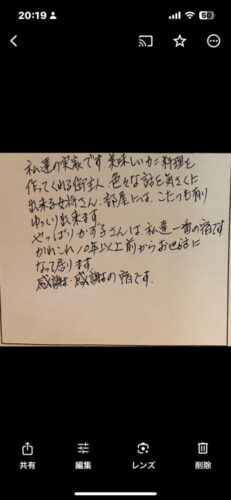 20:19
50
私達の実家です。美味しいカニ料理を
作ってくれる御主人、色々な話を気さくに
出来る女将さん、部屋には、こたつも有り
ゆっくり出来ます。
やっぱりかず子さんは私達一番の宿です
かれこれ10年以上前からお世話に
なって居ります
感謝、感謝の宿です。
共有
編集
レンズ
削除